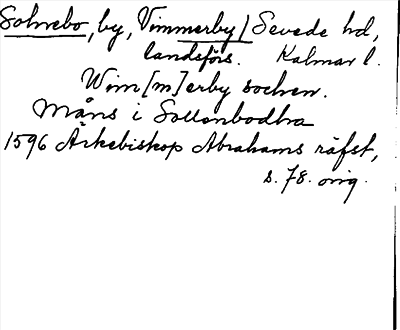 Solnebo, by, Vimmerby / Sevede hd,
landsförs. Kalmar l.
Wim[m]erby sochen.
Måns i Sollonbodha
1596 Ärkebiskop Abrahams räfst,
s. 78. orig.